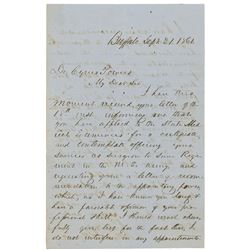 Buffalo Sept. 21 1861
Dr Cyrus Powers
My Dear Sir
I have this
moment received your letter of the
17th inst informing me that
you have applied to the State Med
ical Examiners for a certificate
and contemplate offering your
services as surgeon to some Regi
ment in the U.S. Army and
requesting from me a letter of recom
mendation to the appointing power
While, as I have known you long & have
a favorable opinion of your pro
fessional skill, I should most cheer
fully give it, but for the fact that I
do not interfere in any appointments